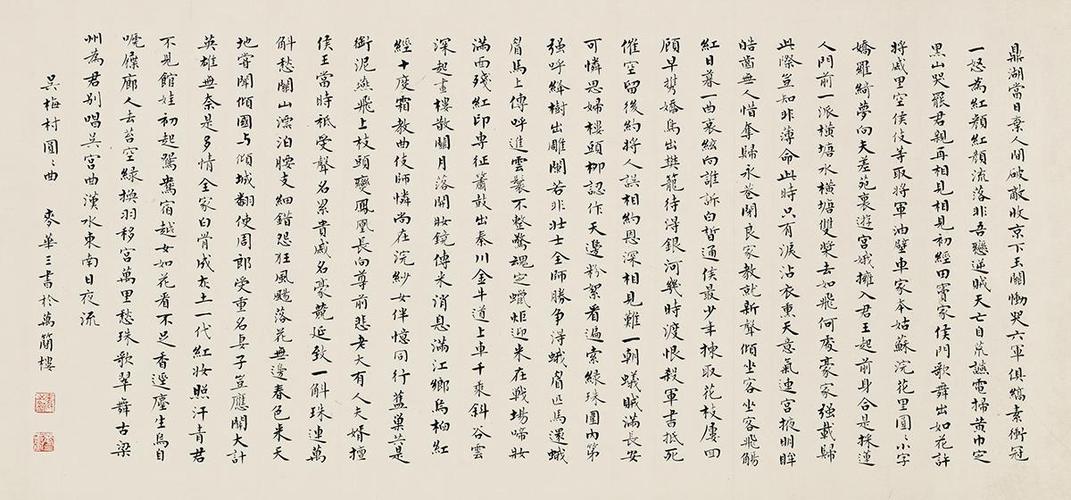 鼎湖當日棄人間破敵收京下玉關慟哭六軍俱縞素衝冠
一怒為紅顏紅顏流落非吾戀逆賊天亡自荒讌電掃黃巾定
黑山哭罷君親再相見相見初經田竇家侯門歌舞出如花許
將戚里空侯伎等取將軍油壁車家本姑蘇浣花里圓〻小字
嬌羅綺夢向夫差苑裏遊宮娥擁入君王起前身合是採蓮
人門前一派橫塘水橫塘雙槳去如飛何處豪家強載歸
此際豈知非薄命此時只有淚沾衣熏天意氣連宮掖明眸
皓齒無人惜奪歸永巷閉良家教就新聲傾坐客坐客飛觴
紅日暮一曲哀絃向誰訴白皙通侯最少年揀取花枝屢回
顧早攜嬌鳥出樊籠待得銀河幾時渡恨殺軍書抵死
催空留後約將人誤相約恩深相見難一朝蟻賊滿長安
可憐思婦樓頭柳認作天邊粉絮看遍索綠珠圍內第
強呼絳樹出雕闌若非壯士全師勝爭得蛾眉匹馬還蛾
眉馬上傳呼進雲鬟不整驚魂定蠟炬迎來在戰場啼妝
滿面殘紅印專征簫鼓出秦川金牛道上車千乘斜谷雲
深起畫樓散關月落開妝鏡傳來消息滿江鄉烏桕紅
經十度霜教曲伎師憐尚在浣紗女伴憶同行舊巢共是
銜泥燕飛上枝頭變鳳凰長向尊前悲老大有人夫婿擅
侯王當時祇受聲名累貴戚名豪競延致一斛珠連萬
斛愁關山漂泊腰支細錯怨狂風颺落花無邊春色來天
地嘗聞傾國与傾城翻使周郎受重名妻子豈應關大計
英雄無奈是多情全家白骨成灰土一代紅妝照汗青君
不見館娃初起鴛鴦宿越女如花看不足香逕塵生鳥自
啼屧廊人去苔空綠換羽移宮萬里愁珠歌翠舞古梁
州為君別唱吳宮曲漢水東南日夜流
吳梅村圓〻曲 麥華三書於萬簡樓